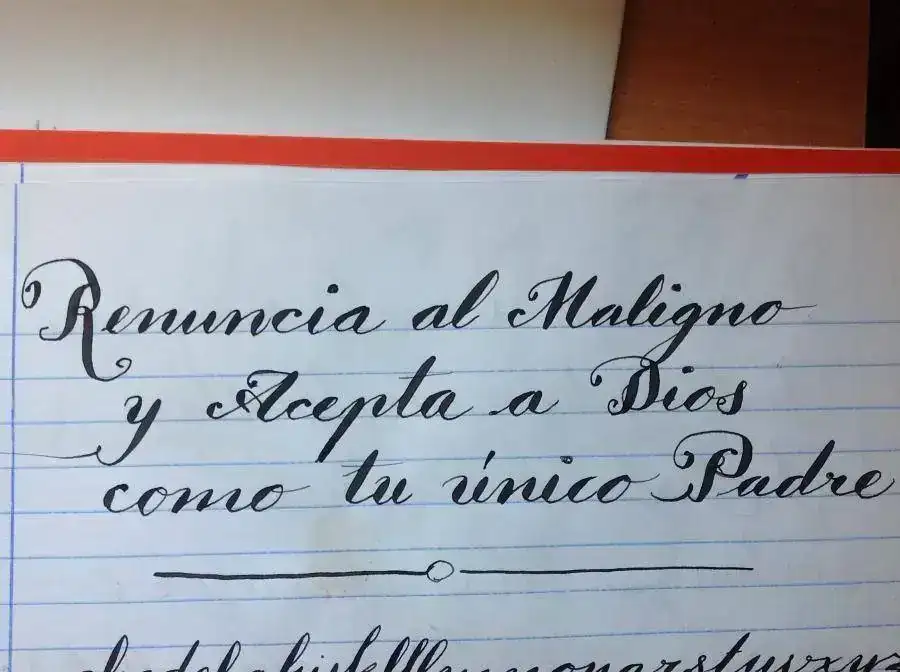 Renuncia al Maligno
y Acepta a Dios
como tu único Padre